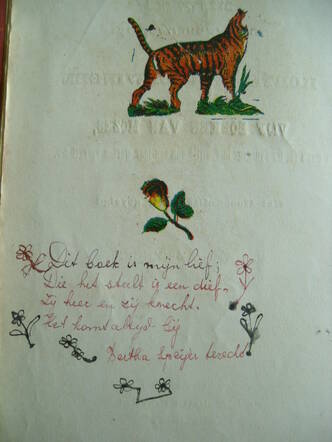 Dit boek is mijn lief;
Die het steelt is een dief.
Zij heer en zij knecht.
Het komt altijd
Bertha Speijer